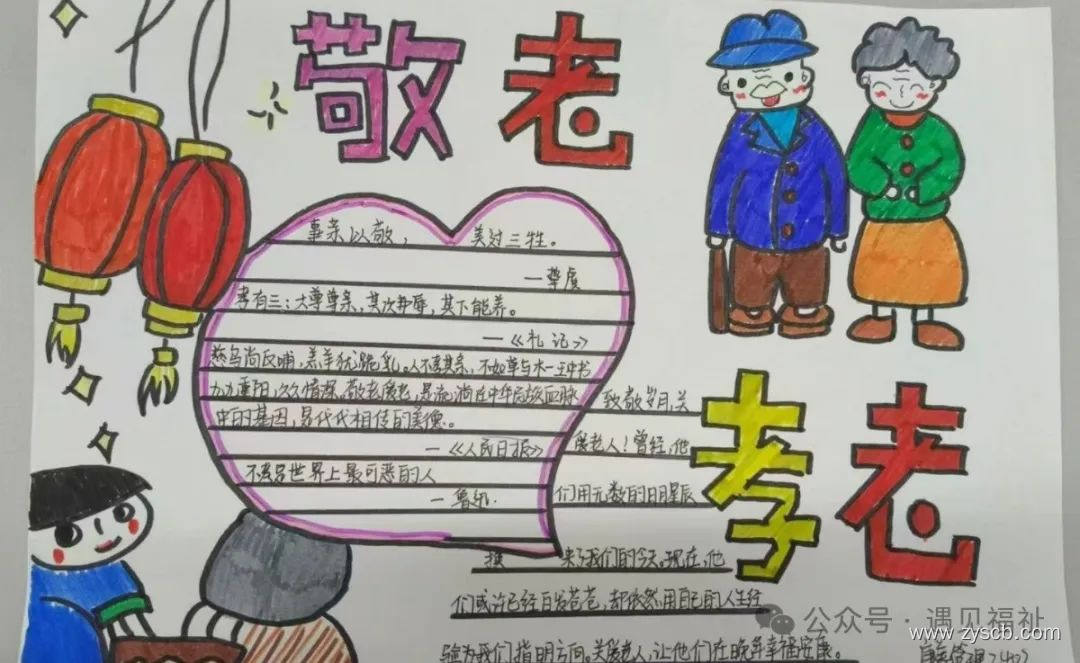 敬老
事亲以敬，美过三牲。
—挚虞
孝有三：大尊尊亲，其次弗辱，其下能养。
—《礼记》
慈乌尚反哺，羔羊犹跪乳，人不孝其亲，不如草与木—王中书
九九重阳，久久情深，敬老爱老，是流淌在中华民族血脉
中的基因，是代代相传的美德。
—《人民日报》
不孝是世界上最可恶的人
—鲁迅
孝老
致敬岁月，关
爱老人！曾经，他
们用无数的日月星辰
换来了我们的今天。现在，他
们或许已经白发苍苍，却依然用自己的人生经
验为我们指明方向。关爱老人，让他们在晚年幸福安康。
公众号·遇见福祉
www.zyscb.com